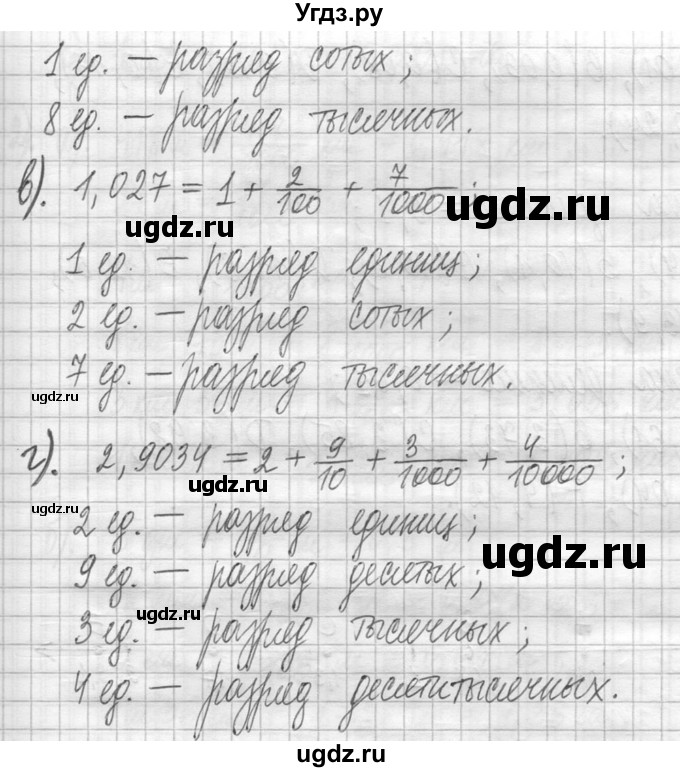 Угдз.ру
1 ед. — разряд сотых;
8 ед. — разряд тысячных.
в). 1,027 = 1 + 2/100 + 7/1000;
ugdz.ru ugdz.ru
1 ед. — разряд единиц;
2 ед. — разряд сотых;
7 ед. — разряд тысячных.
ugdz.ru
г). 2,9034 = 2 + 9/10 + 3/1000 + 4/10000;
ugdz.ru
ugdz.ru
2 ед. — разряд единиц;
ugdz.ru
9 ед. — разряд десятых;
ugdz.ru
3 ед. — разряд тысячных;
4 ед. — разряд десятитысячных.
ugdz.ru